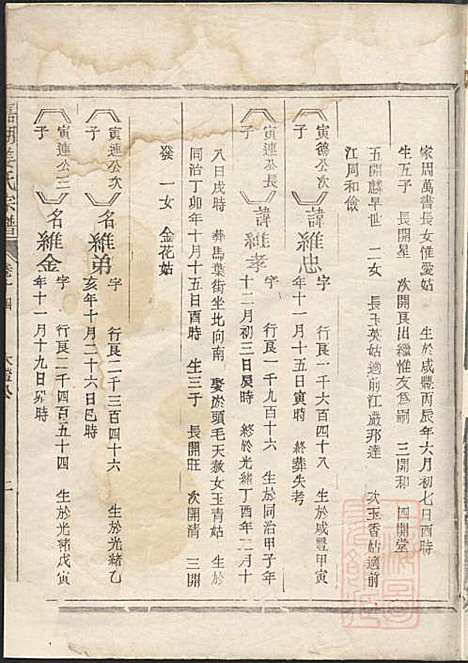 家周萬書長女催愛姑 生於咸豐丙辰年六月初七日酉時
生五子 長開星 次開良出繼惟友爲嗣 三開和 四開堂
五開麟早世 二女 長玉英姑適前江嚴邦達 次玉香姑適前
江周和儉
寅德公次子 諱維忠 字 行良一千六百四十八 生於咸豐甲寅
年十一月十五日寅時 終葬失考
寅連公長子 諱維孝 字 行良一千九百十六 生於同治甲子年
十二月初三日辰時 終於光緒丁酉年二月十
八日戌時 葬馬葉街坐北向南 娶淤頭毛天敘女玉青姑 生於
同治丁卯年十月十五日酉時 生三子 長開旺 次開清 三開
發 一女 金花姑
寅連公次子 名維弟 字 行良二千三百四十六 生於光緒乙
亥年十月二十六日巳時
寅連公三子 名維金 字 行良二千四百五十四 生於光緒戊寅
年十一月十九日卯時
氏宗譜 卷十四 二